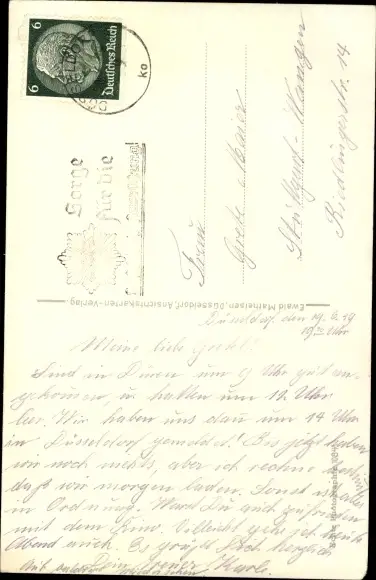 6
6
Deutsches Reich
ko
Sorge
für die
Frau
Grete Maier
Stuttgart-Wangen
Riedlingerstr. 14
Ewald Matheisen, Düsseldorf, Ansichtskarten-Verlag.
Düsseldorf, den 19.
19 Uhr
Meine liebe Gretel!
Sind in Düren um 9 Uhr gut an-
gekommen, u. hatten um 12 Uhr
leer. Wir haben uns dann um 14 Uhr
in Düsseldorf gemeldet. Bis jetzt haben
wir noch nichts, aber ich rechne
daß wir morgen laden. Sonst ist alles
in Ordnung. Warst Du auch zufrieden
mit dem Vielleicht geh ich heute
Abend auch. Es grüßt Dich herzlich
Dein treuer Karl.